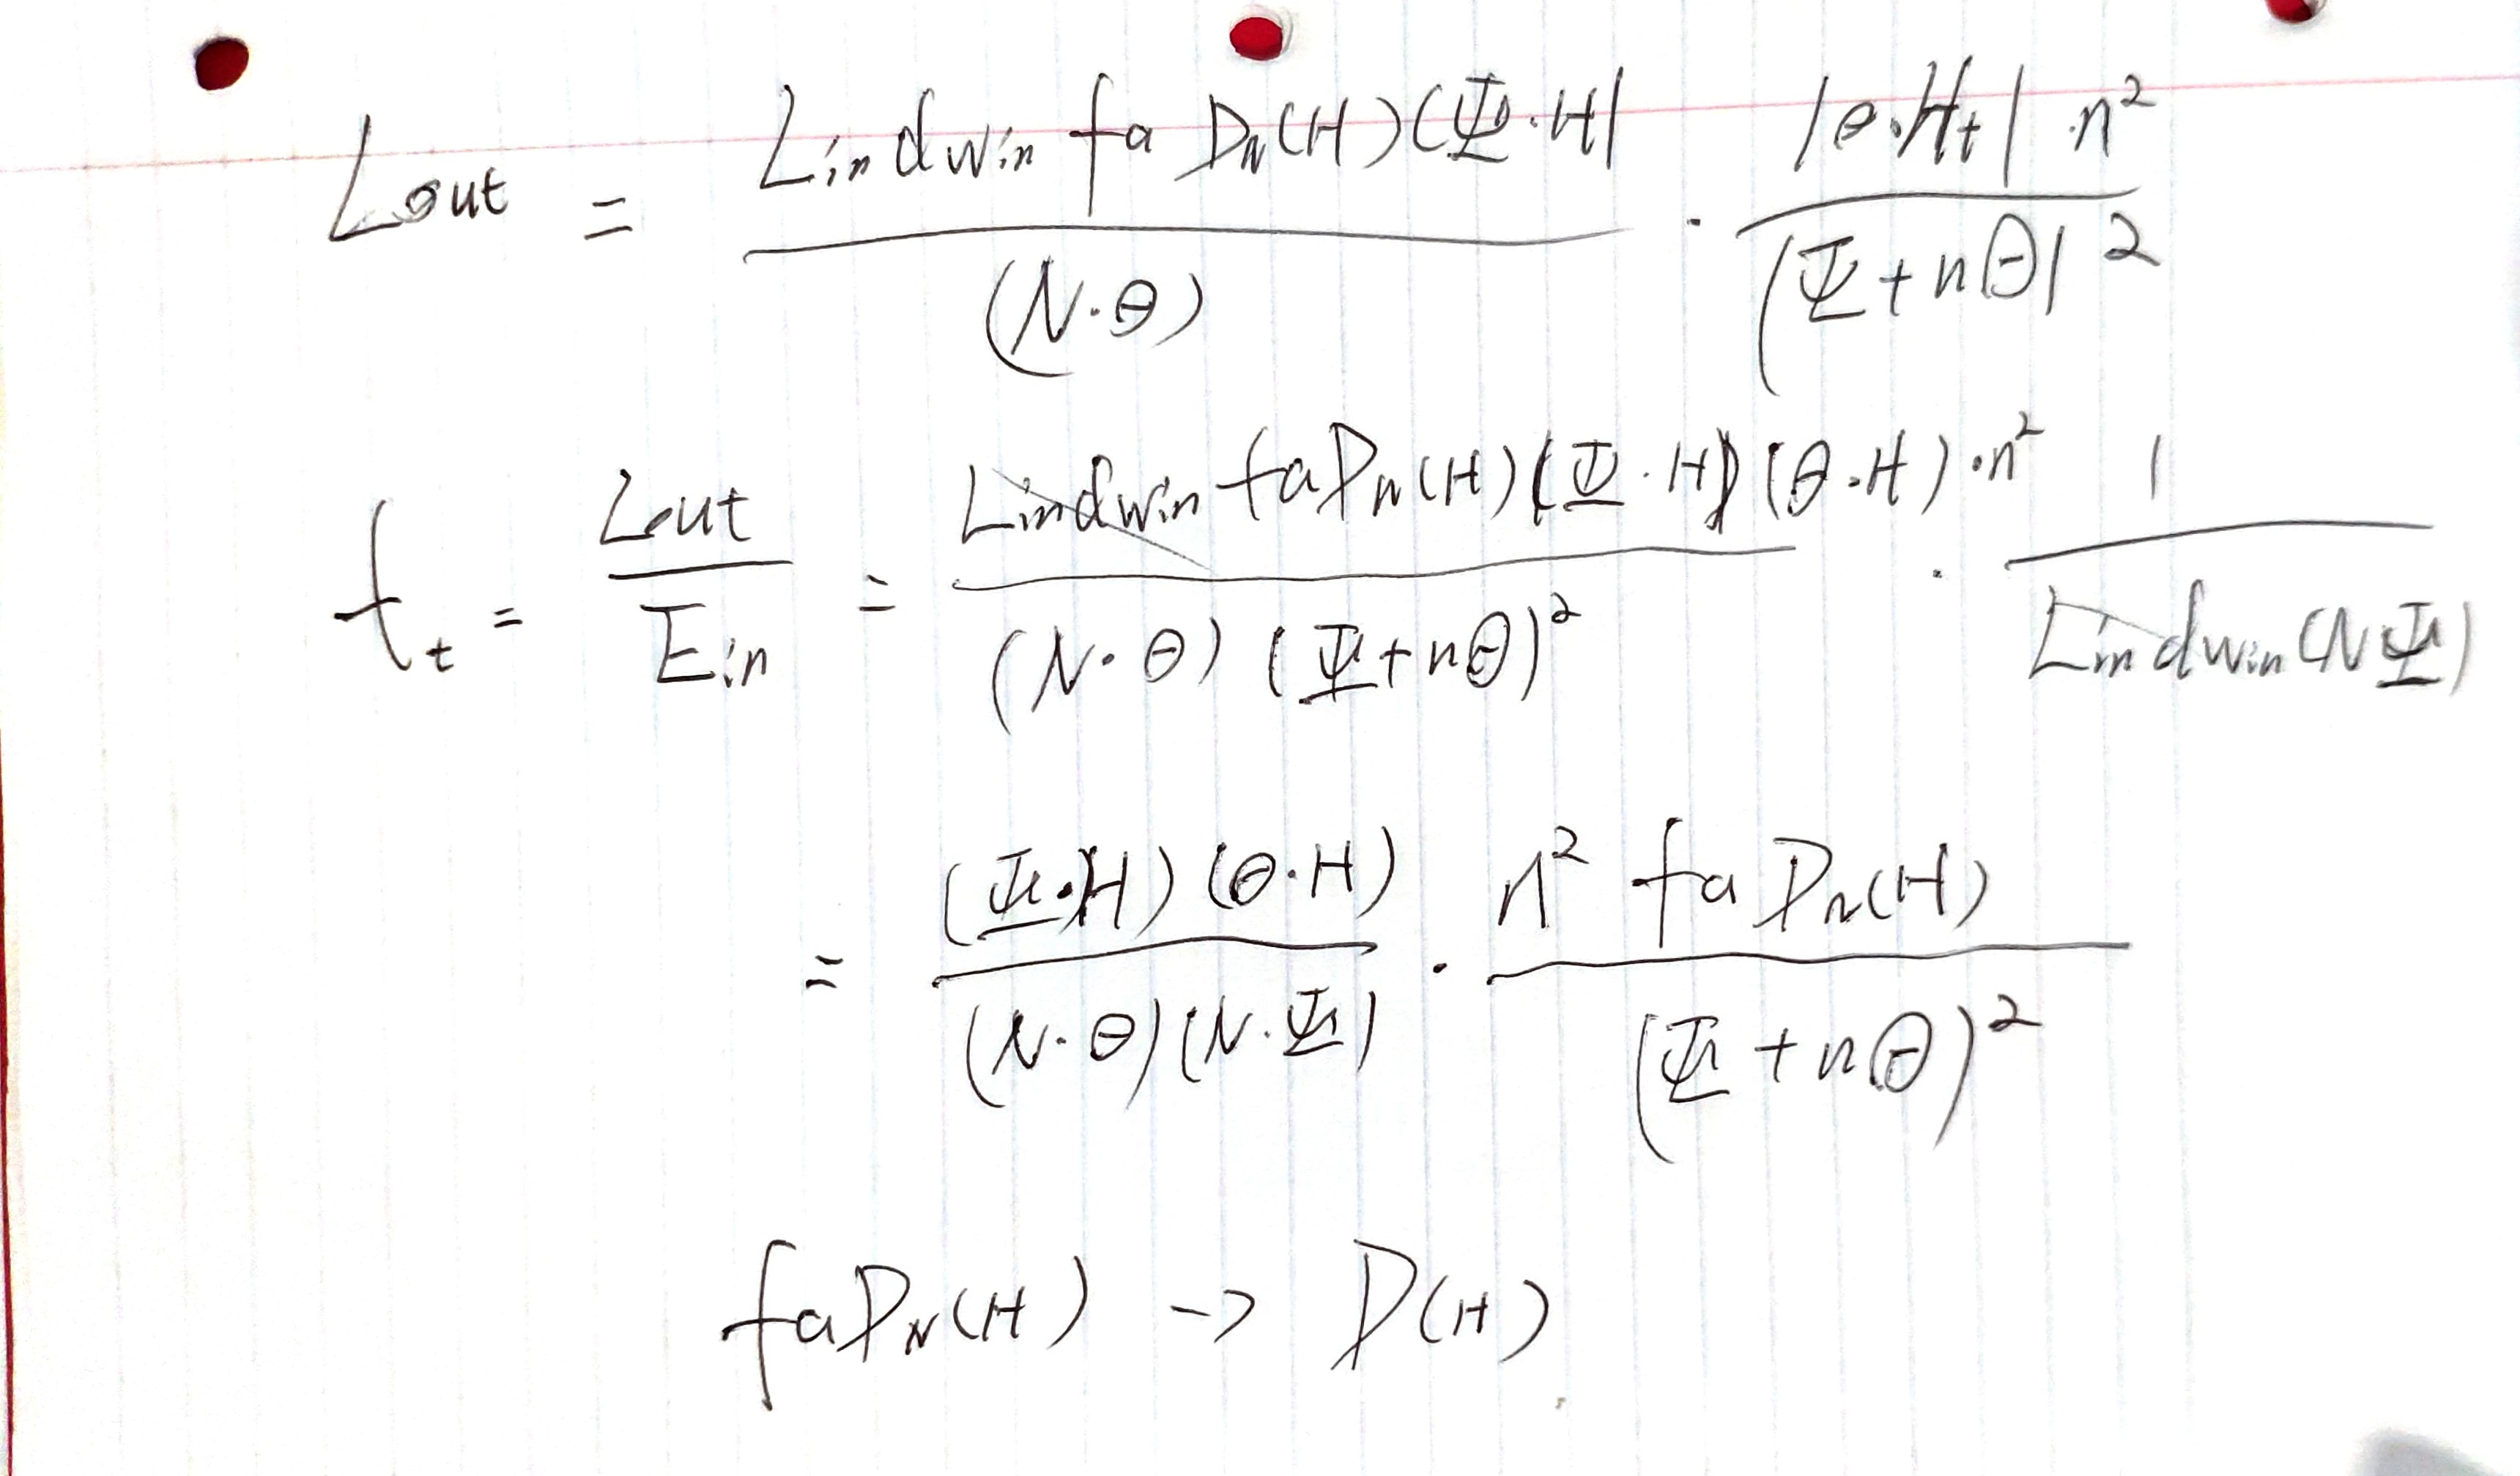 Lout = Lin dwin fa DN(H) (Ψ·H| / (N·θ) · |θ·Ht| ·n² / |Ψ+nθ|²
ft = Lout / Ein = Lin dwin fa DN(H) (Ψ·H) (θ·H) ·n² / (N·θ) (Ψ+nθ)² · 1 / Lin dwin (NΨ)
= (Ψ·H) (θ·H) / (N·θ) (N·Ψ) · n² fa DN(H) / (Ψ+nθ)²
fa DN(H) -> D(H)